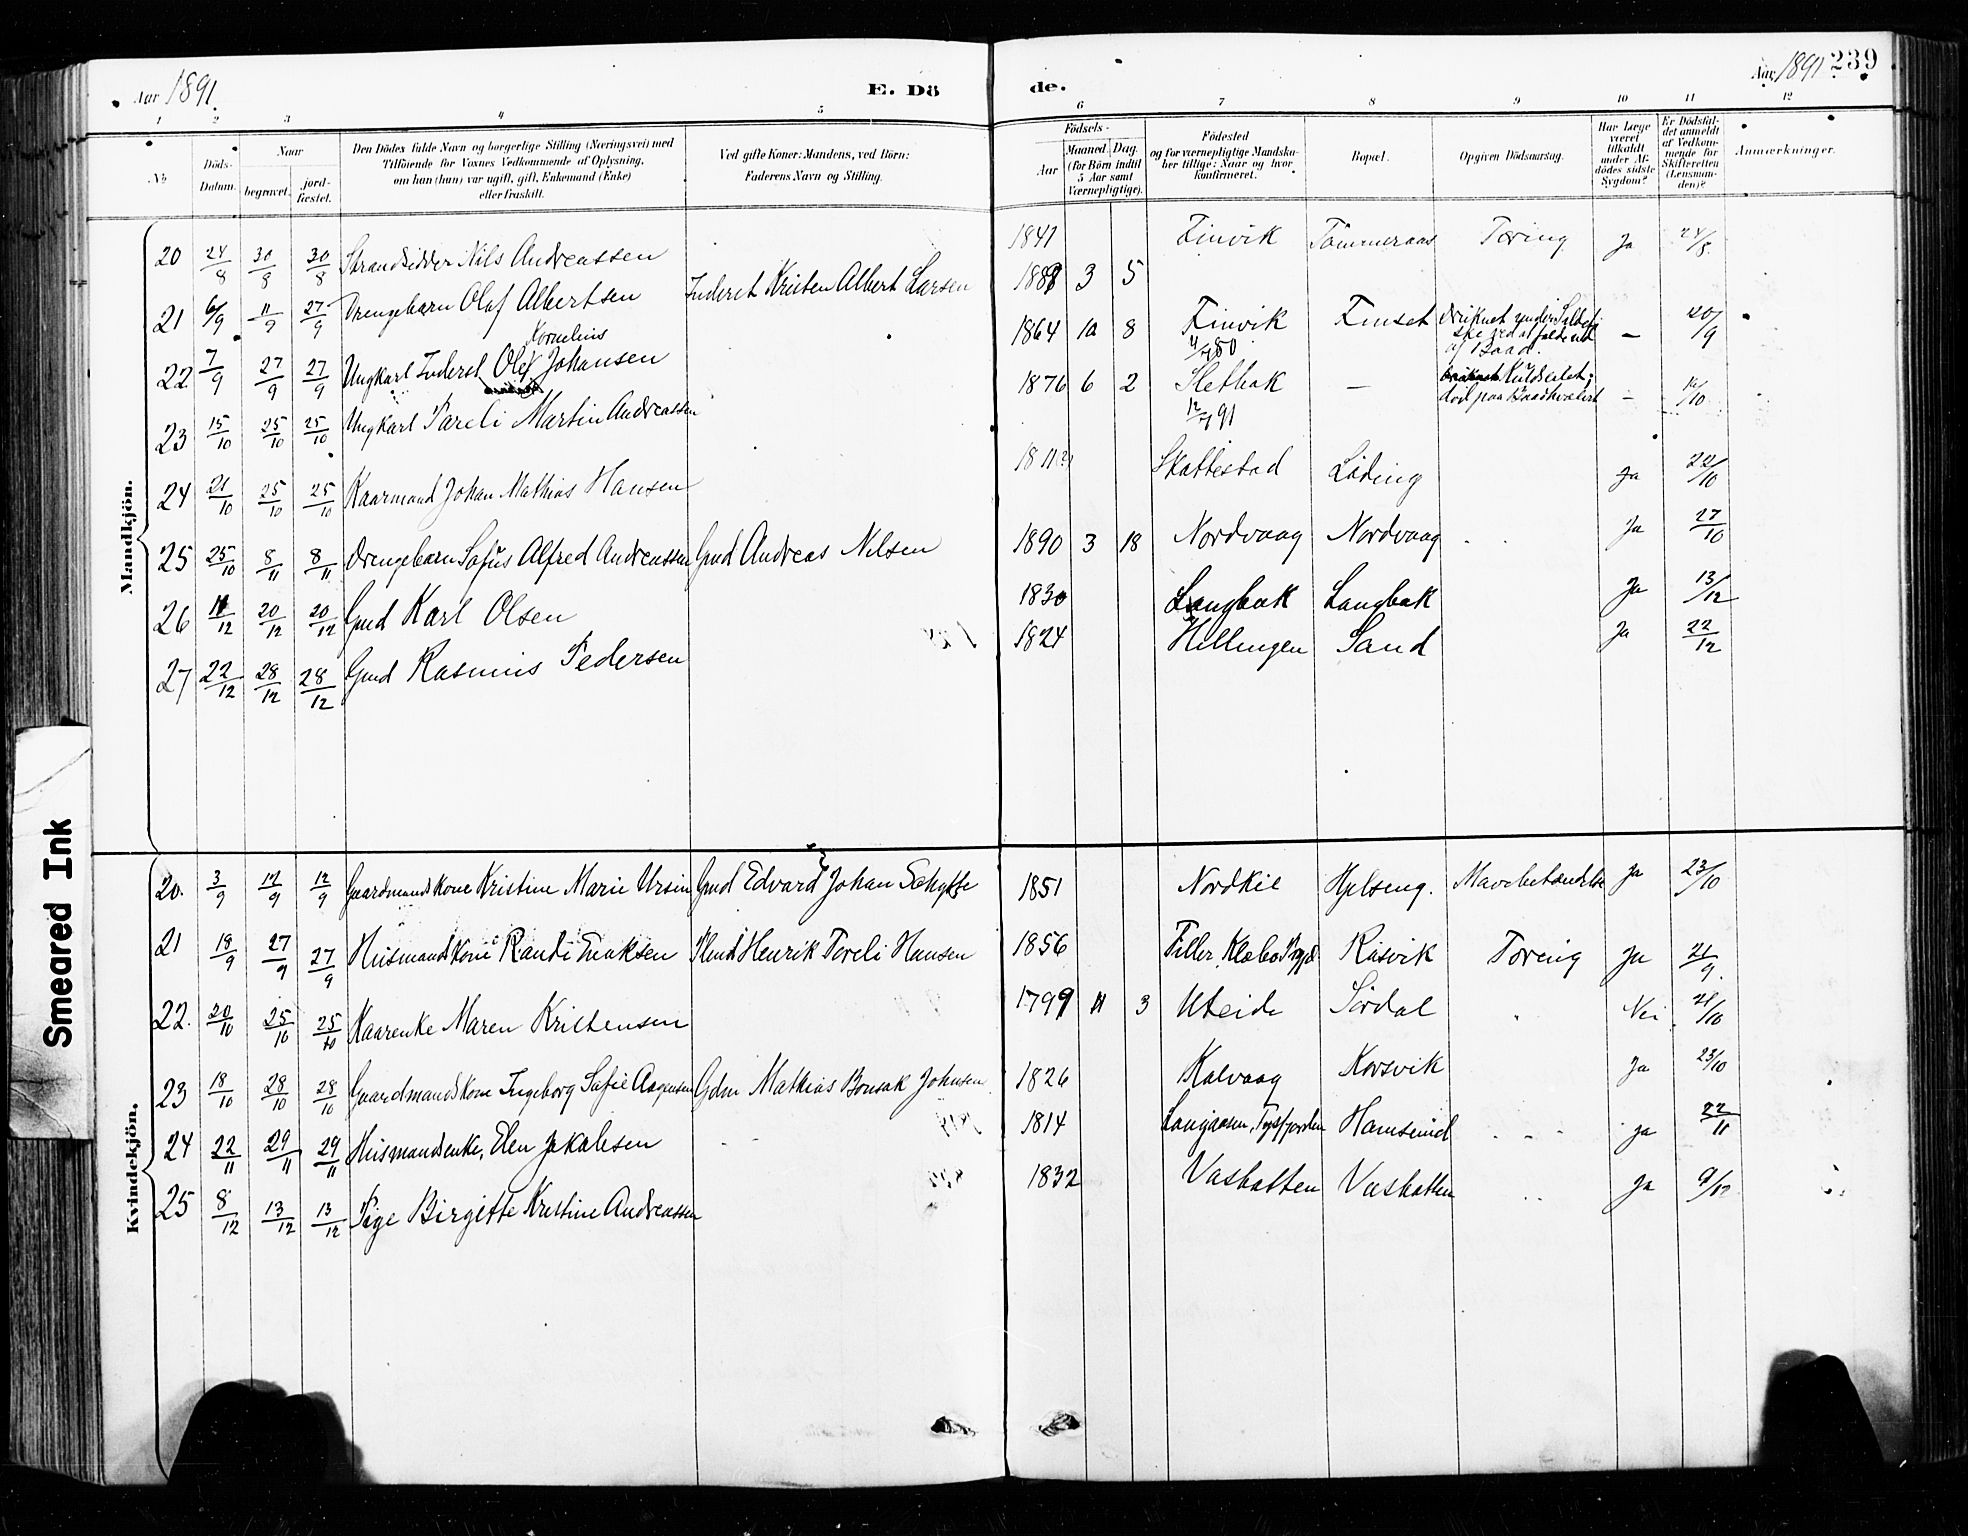 Aar 1891.
E. Dö
de.
Aar 1891
239
1 2 3 4 5 6 7 8 9 10 11 12
No
Döds-Datum.
Naar
begravet.
jord-fæstet.
Den Dödes fulde Navn og borgerlige Stilling (Næringsvei) med
Tilföiende for Voxnes Vedkommende af Oplysning,
om han (hun) var ugift, gift, Enkemand (Enke)
eller fraskilt.
Ved gifte Koner: Mandens, ved Börn:
Faderens Navn og Stilling.
Födsels-
Aar
Maaned. Dag.
(for Börn indtil
5 Aar samt
Værnepligtige).
Födested
og for værnepligtige Mandska-
ber tillige: Naar og hvor
konfirmeret.
Bopæl.
Opgiven Dödsaarsag.
Har Læge
været
tilkaldt
under Af-
dödes sidste
Sygdom?
Er Dödsfal-
det anmeldt
af Vedkom-
mende for
Skifteretten
(Lensman-
den)?
Anmærkninger.
Mandkjön.
20 24/8 30/8 30/8 Strandsidder Nils Andreassen 1841 Finvik Tømmeraas Tæring Ja 24/8.
21 6/9 11/9 27/9 Drengebarn Olaf Albertsen Inderst Kristen Albert Larsen 3 5
Kornelius
22 7/9 27/9 27/9 Ungkarl Inderst Olef Johansen 1864 10 8 Finvik Finset Druknet under Sildefiske ved at falde ud af Baad. — 20/9
23 15/10 25/10 25/10 Ungkarl Pareli Martin Andreassen 1876 6 2 Sletbak — — 16/10
24 21/10 25/10 25/10 Kaarmand Johan Mathias Hansen 1811(?) Skattestad Löding ja 22/10
25 25/10 8/11 8/11 Drengebarn Sofus Alfred Andreassen Gmd Andreas Nilsen 1890 3 18 Nordvaag Nordvaag Ja 27/10
26 11/12 20/12 20/12 Gmd Karl Olsen 1830 Langbak Langbak Ja 13/12
27 22/12 28/12 28/12 Gmd Rasmus Pedersen 1824 Hellingen Sand Ja 22/12
Smeared Ink
Kvindekjön.
20. 3/9 12/9 12/9 Gaardmandskone Kristine Marie Ursin Gmd Edvard Johan Schytte 1851 Nordkil Hjelseng. Mavebetændelse Ja 23/10
21 18/9 27/9 27/9 Husmandskone Randi Eriksen Henrik Pereli Hansen 1856 Tiller, Klæbo Prgjd Räsvik Tæring Ja 21/9.
22. 20/10 25/10 25/10 Kaarenke Maren Kristensen 1799 11 3 Uteide Sördal Nei 21/10
23 18/10 28/10 28/10 Gaardmandskone Ingeborg Sofie Aagesen Gdm Mathias Bonsak Johnsen 1826 Kalvaag Korsvik Ja 23/10
24 22/11 29/11 29/11 Husmandsenke, Elen Jakobsen 1814 Langaasen, Tysfjorden Hamsund ja 22/11
25 8/12 13/12 13/12 Pige Birgitte Kristine Andreassen 1832 Vashatten Vashatten Ja 9/12